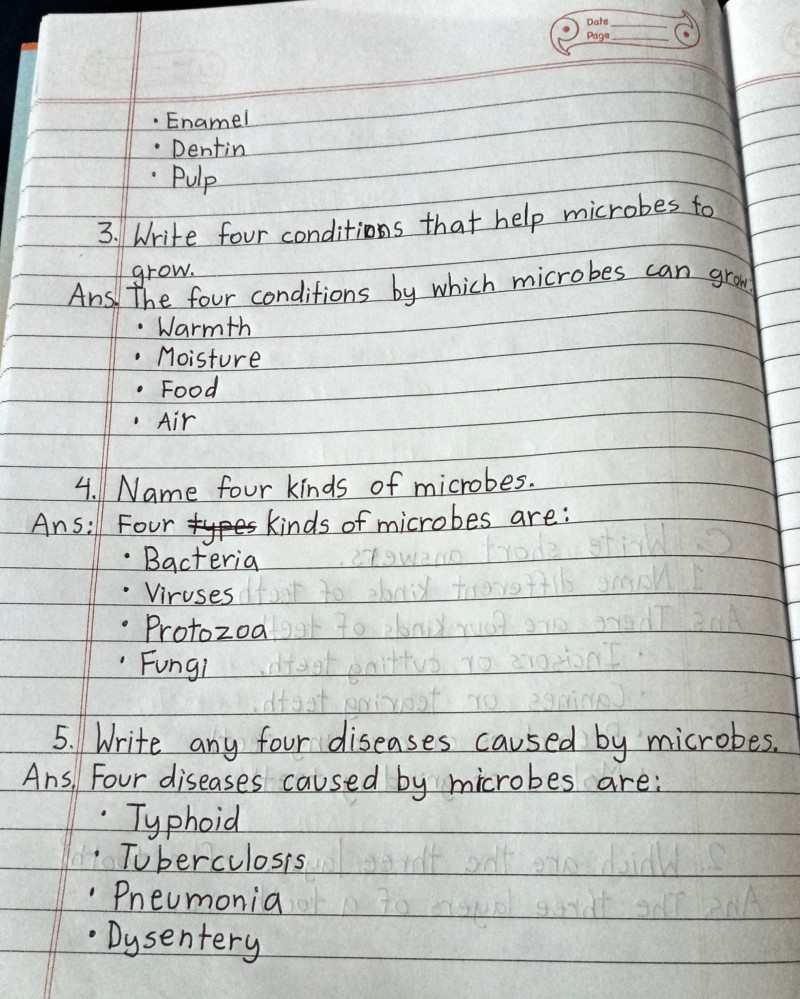 Date
Page
• Enamel
• Dentin
• Pulp
3. Write four conditions that help microbes to
grow.
Ans. The four conditions by which microbes can grow:
• Warmth
• Moisture
• Food
• Air
4. Name four kinds of microbes.
Ans: Four types kinds of microbes are:
• Bacteria
• Viruses
• Protozoa
• Fungi
5. Write any four diseases caused by microbes.
Ans. Four diseases caused by microbes are:
• Typhoid
• Tuberculosis
• Pneumonia
• Dysentery